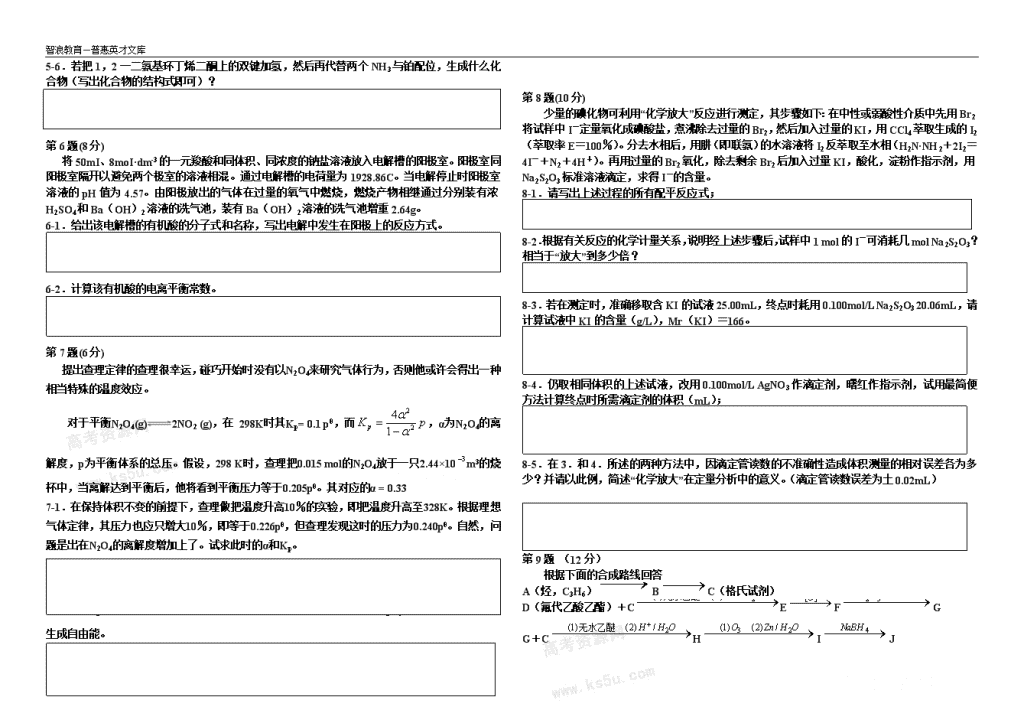 智浪教育—普惠英才文库
5-6．若把 1，2 —二氨基环丁烯二酮上的双键加氢，然后再代替两个 NH3 与铂配位，生成什么化
合物（写出化合物的结构式即可）？
第 6 题(8 分)
将 50mL 8mol·dm-3 的一元羧酸和同体积、同浓度的钠盐溶液放入电解槽的阳极室。阳极室同
阴极室隔开以避免两个极室的溶液相混。通过电解槽的电荷量为 1928.86C。当电解停止时阳极室
溶液的 pH 值为 4.57。由阳极放出的气体在过量的氧气中燃烧，燃烧产物相继通过分别装有浓
H2SO4 和 Ba（OH）2 溶液的洗气池，装有 Ba（OH）2 溶液的洗气池增重 2.64g。
6-1．给出该电解槽的有机酸的分子式和名称，写出电解中发生在阳极上的反应方式。
6-2．计算该有机酸的电离平衡常数。
第 7 题(6 分)
提出查理定律的查理很幸运，碰巧开始时没有以N2O4来研究气体行为，否则他或许会得出一种
相当特殊的温度效应。
对于平衡N2O4(g)══2NO2 (g)，在 298K时其Kp= 0.1 pθ，而 Kp = 4α²/(1-α²) p，α为N2O4的离
解度，p为平衡体系的总压。假设，298 K时，查理把0.015 mol的N2O4放于一只2.44×10 -3m³的烧
杯中，当离解达到平衡后，他将看到平衡压力等于0.205pθ。其对应的α = 0.33
7-1．在保持体积不变的前提下，查理做把温度升高10％的实验，即把温度升高至328K。根据理想
气体定律，其压力也应只增大10％，即等于0.226pθ，但查理发现这时的压力为0.240pθ。自然，问
题是出在N2O4的离解度增加上了。试求此时的α和Kp。
生成自由能。
第 8 题(10 分)
少量的碘化物可利用“化学放大”反应进行测定，其步骤如下：在中性或弱酸性介质中先用 Br2
将试样中 I－定量氧化成碘酸盐，煮沸除去过量的 Br2，然后加入过量的 KI，用 CCl4 萃取生成的 I2
（萃取率 E＝100％）。分去水相后，用肼（即联氨）的水溶液将 I2 反萃取至水相（H2N·NH2＋2I2＝
4I－＋N2＋4H＋）。再用过量的 Br2 氧化，除去剩余 Br2 后加入过量 KI，酸化，淀粉作指示剂，用
Na2S2O3 标准溶液滴定，求得 I－的含量。
8-1．请写出上述过程的所有配平反应式；
8-2．根据有关反应的化学计量关系，说明经上述步骤后，试样中 1 mol 的 I－可消耗几 mol Na2S2O3？
相当于“放大”到多少倍？
8-3．若在测定时，准确移取含 KI 的试液 25.00mL，终点时耗用 0.100mol/L Na2S2O3 20.06mL，请
计算试液中 KI 的含量（g/L），Mr（KI）＝166。
8-4．仍取相同体积的上述试液，改用 0.100mol/L AgNO3 作滴定剂，曙红作指示剂，试用最简便
方法计算终点时所需滴定剂的体积（mL）；
8-5．在 3．和 4．所述的两种方法中，因滴定管读数的不准确性造成体积测量的相对误差各为多
少？并请以此例，简述“化学放大”在定量分析中的意义。（滴定管读数误差为土 0.02mL）
第 9 题 （12 分）
根据下面的合成路线回答
A（烃，C3H6） → B → C（格氏试剂）
D（氟代乙酸乙酯）＋C → E → F → G
G＋C (1)无水乙醚 (2)H+/H2O → H (1)O3 (2)Zn/H2O → I NaBH4 → J
高考资源网
www.ks5u.com